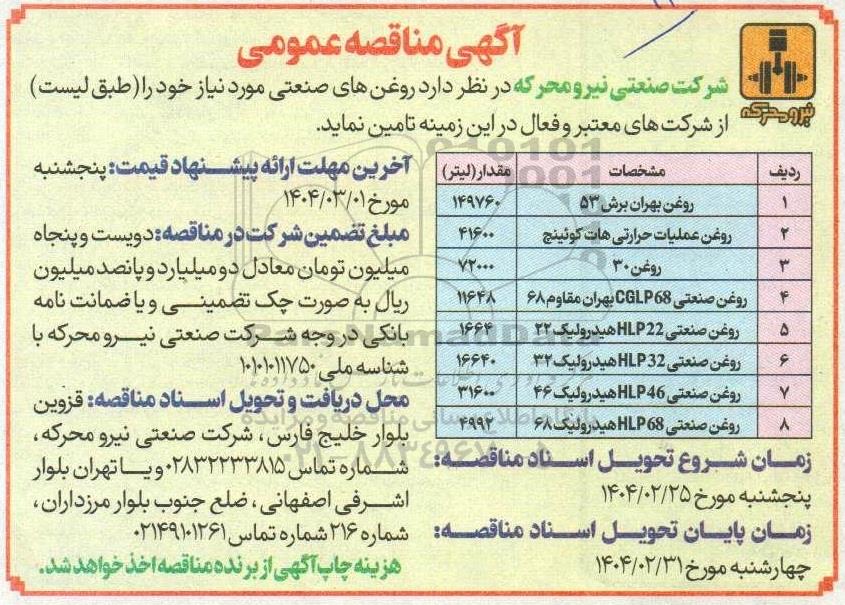 آگهی مناقصه عمومی
نیرومحرکه
شرکت صنعتی نیرومحرکه در نظر دارد روغن های صنعتی مورد نیاز خود را (طبق لیست)
از شرکت های معتبر و فعال در این زمینه تامین نماید.
ردیف مشخصات مقدار (لیتر)
۱ روغن بهران برش ۵۳ ۱۴۹۷۶۰
۲ روغن عملیات حرارتی هات کوئینچ ۴۱۶۰۰
۳ روغن ۳۰ ۷۲۰۰۰
۴ روغن صنعتی CGLP68 بهران مقاوم ۶۸ ۱۱۶۴۸
۵ روغن صنعتی HLP22 هیدرولیک ۲۲ ۱۶۶۴
۶ روغن صنعتی HLP32 هیدرولیک ۳۲ ۱۶۶۴۰
۷ روغن صنعتی HLP46 هیدرولیک ۴۶ ۳۱۶۰۰
۸ روغن صنعتی HLP68 هیدرولیک ۶۸ ۴۹۹۲
زمان شروع تحویل اسناد مناقصه:
پنجشنبه مورخ ۱۴۰۴/۰۲/۲۵
زمان پایان تحویل اسناد مناقصه:
چهارشنبه مورخ ۱۴۰۴/۰۲/۳۱
آخرین مهلت ارائه پیشنهاد قیمت: پنجشنبه
مورخ ۱۴۰۴/۰۳/۰۱
مبلغ تضمین شرکت در مناقصه: دویست و پنجاه
میلیون تومان معادل دو میلیارد و پانصد میلیون
ریال به صورت چک تضمینی و یا ضمانت نامه
بانکی در وجه شرکت صنعتی نیرو محرکه با
شناسه ملی ۱۰۱۰۱۰۱۱۷۵۰
محل دریافت و تحویل اسناد مناقصه: قزوین
بلوار خلیج فارس، شرکت صنعتی نیرو محرکه،
شماره تماس ۰۲۸۳۲۲۳۳۸۱۵ و یا تهران بلوار
اشرفی اصفهانی، ضلع جنوب بلوار مرزداران،
شماره ۲۱۶ شماره تماس ۰۲۱۴۹۱۰۱۲۶۱
هزینه چاپ آگهی از برنده مناقصه اخذ خواهد شد.